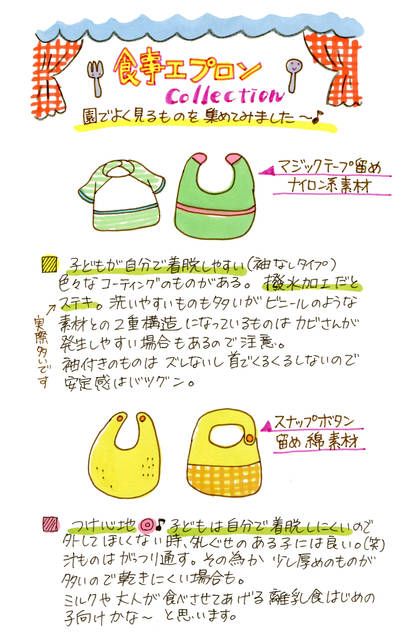 食事エプロン
Collection
園でよく見るものを集めてみました～♪
マジックテープ留め
ナイロン系素材
子どもが自分で着脱しやすい(袖なしタイプ)
色々なコーティングのものがある。撥水加工だと
ステキ。洗いやすいものも多いがビニールのような
素材との2重構造になっているものはカビさんが
発生しやすい場合もあるので注意。
袖付きのものはズレないし首でくるくるしないので
安定感はバツグン。
実際多いです
スナップボタン
留め綿素材
つけ心地◎♪子どもは自分で着脱しにくいので
外してほしくない時、外しぐせのある子には良い。(笑)
汁ものはがっつり通す。その為か少し厚めのものが
多いので乾きにくい場合も。
ミルクや大人が食べさせてあげる離乳食はじめの
子向けかな～と思います。